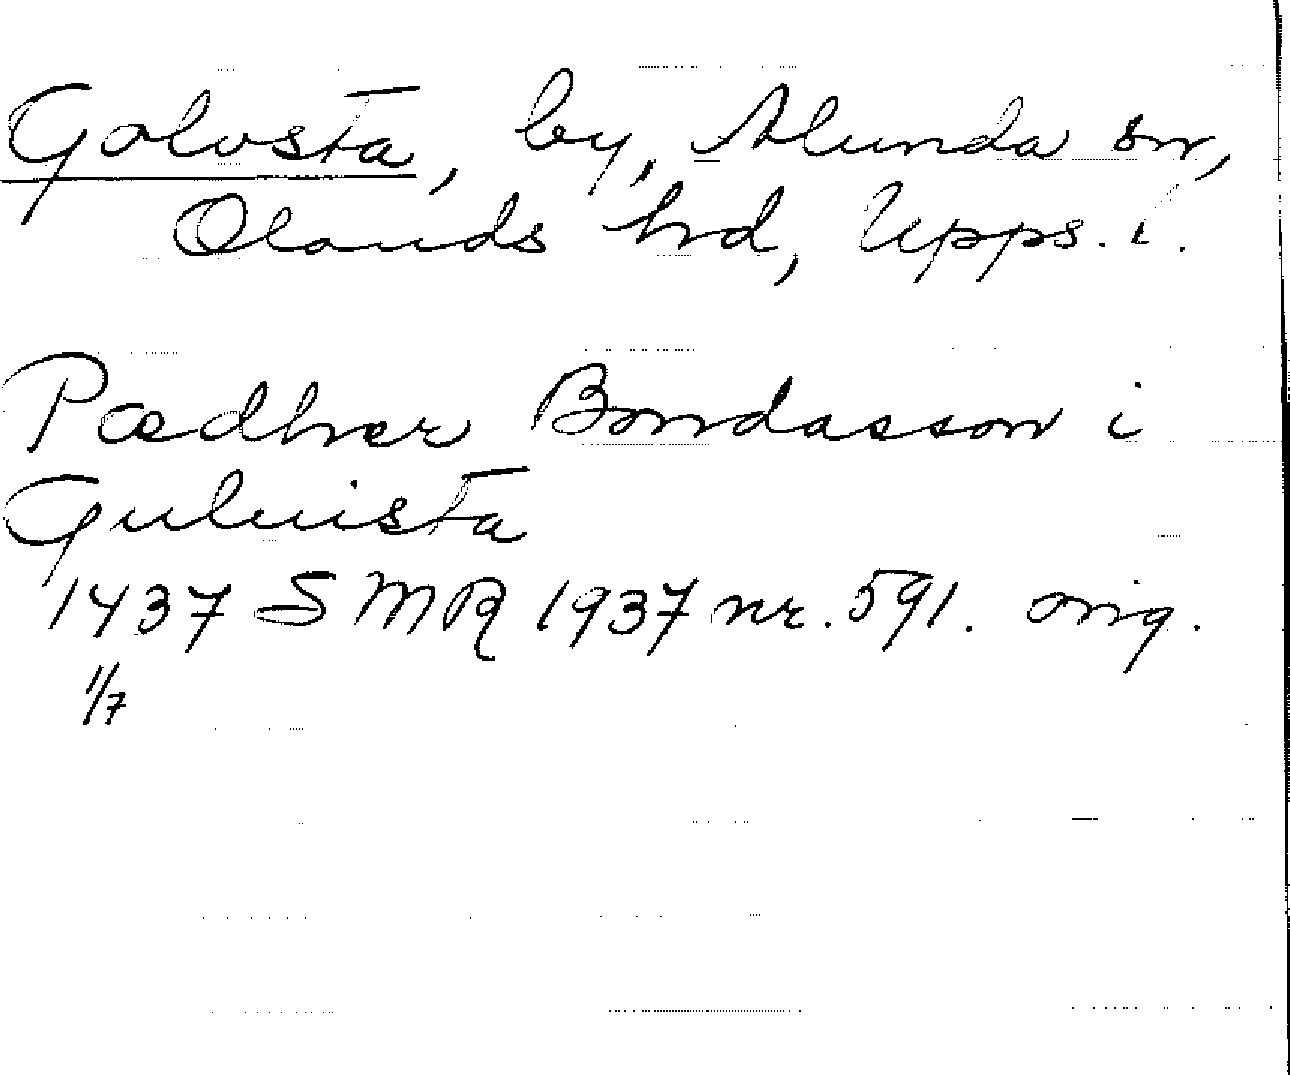 Golvsta, by, Alunda sn,
Olands hrd, Upps. l.
Pædher Bondasson i
Guluista
1437 SMR 1937 nr. 591. orig.
11/7